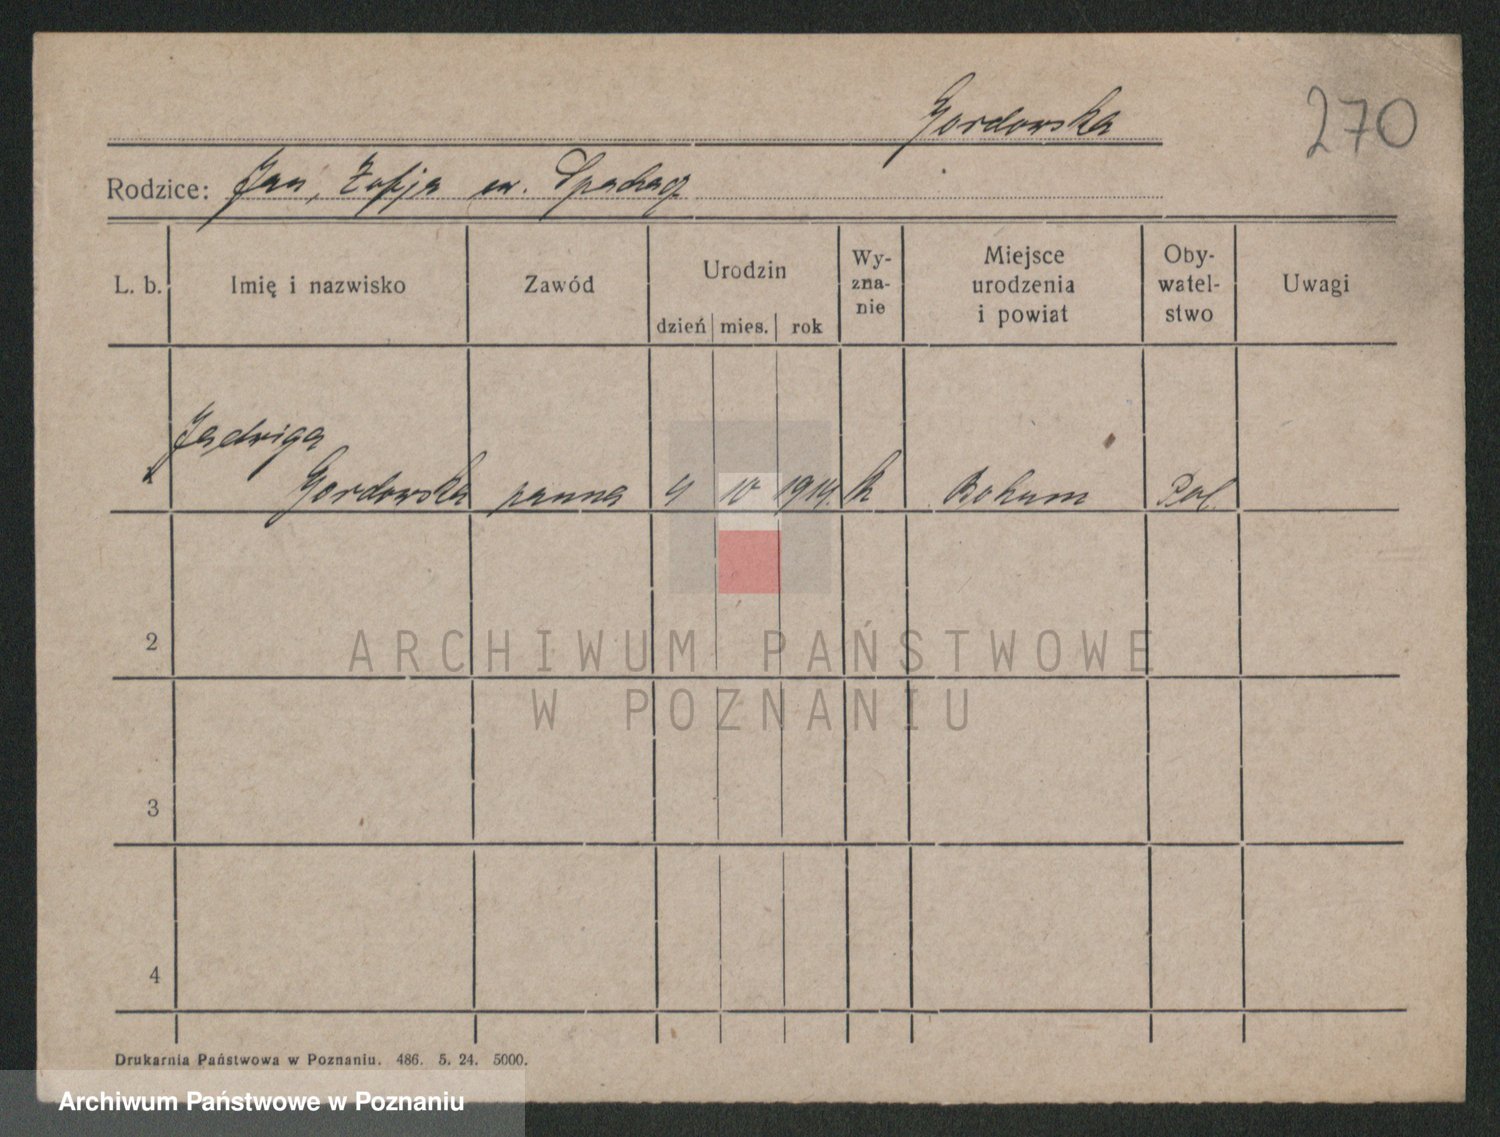 Gordowska
270
Rodzice: Jan, Zofja
L. b. Imię i nazwisko Zawód Urodzin dzień mies. rok Wy-zna-nie Miejsce urodzenia i powiat Oby-watel-stwo Uwagi
Jadwiga
1 Gordowska panna 4 10 1914. k Bohum Pol.
2
ARCHIWUM PAŃSTWOWE
W POZNANIU
3
4
Drukarnia Państwowa w Poznaniu. 486. 5. 24. 5000.
Archiwum Państwowe w Poznaniu